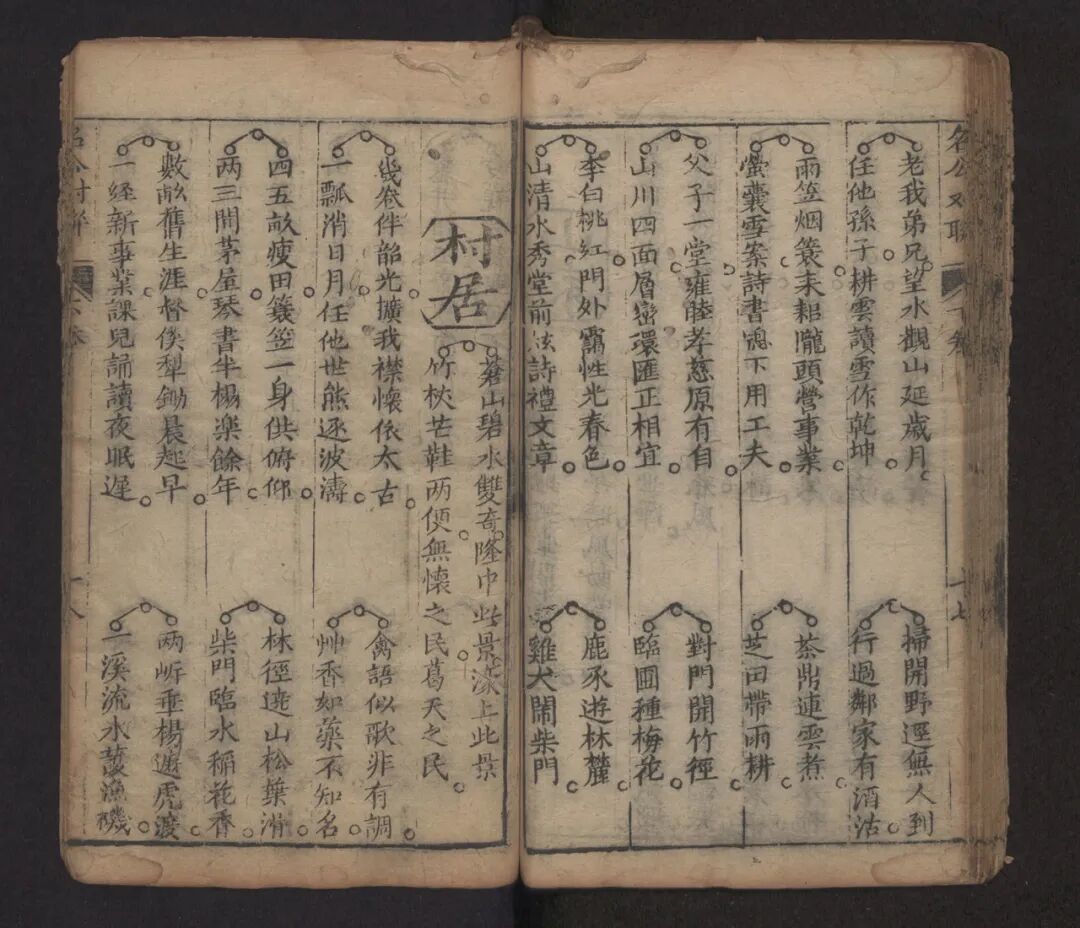 名公對聯
下卷
十七
老我弟兄望水觀山延歲月
任他孫子耕雲讀雪作乾坤
雨笠烟簑耒耜隴頭營事業
螢囊雪案詩書窓下用工夫
父子一堂雍睦孝慈原有自
山川四面層巒環匯正相宜
李白桃紅門外靄性光春色
山清水秀堂前絃詩禮文章
掃開野逕無人到
行過鄰家有酒沽
茶鼎連雲煮
芝田帶雨耕
對門開竹徑
臨圃種梅花
鹿豕遊林麓
雞犬鬧柴門
村居
蒼山碧水雙奇隆中此景濠上此景
竹杖芒鞋兩便無懷之民葛天之民
幾卷伴韶光擴我襟懷依太古
一瓢消日月任他世態逐波濤
四五畝瘦田簑笠一身供俯仰
兩三間茅屋琴書半榻楽餘年
數畝舊生涯督僕犁鋤晨起早
一经新事業課兒誦讀夜眠遲
禽語似歌非有調
艸香如藥不知名
林徑遶山松葉滑
柴門臨水稲花香
两岍垂楊遞虎渡
一溪流水護漁磯
名公對聯
下卷
十八